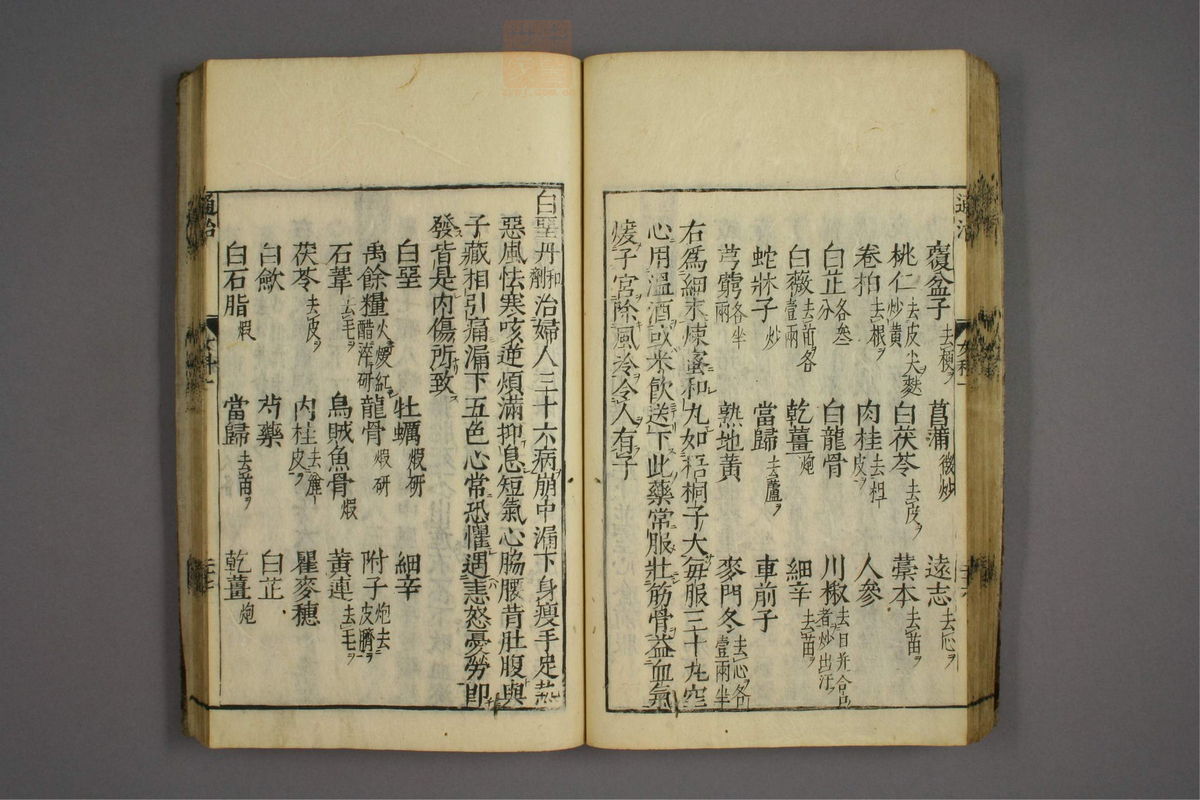 覆盆子去梗ヲ 菖蒲微炒 遠志去心ヲ
桃仁去皮尖麩炒黄 白茯苓去皮ヲ 藁本去苗ヲ
卷柏去根ヲ 肉桂去粗皮ヲ 人參
白芷各叁分 白龍骨 川椒去目并合口者炒出汗
白薇去苗各壹兩 乾薑炮 細辛去苗ヲ
蛇牀子炒 當歸去蘆ヲ 車前子
芎藭各半兩 熟地黄 麥門冬去心各壹兩半
右爲細末煉蜜和丸如梧桐子大毎服三十丸空
心用温酒或米飲送下此藥常服壯筋骨益血氣
煖子宮除風冷令人有子
白堊丹和劑治婦人三十六病崩中漏下身瘦手足熱
惡風怯寒咳逆煩滿抑息短氣心脇腰背肚腹與
子藏相引痛漏下五色心常恐懼遇恚怒憂勞即
發皆是内傷所致
白堊 牡蠣煆研 細辛
禹餘糧火煆紅醋淬研 龍骨煆研 附子炮去皮臍
石葦去毛ヲ 烏賊魚骨煆 黃連去毛ヲ
茯苓去皮ヲ 肉桂去麄皮ヲ 瞿麥穗
白歛 芍藥 白芷
白石脂煆 當歸去苗ヲ 乾薑炮
通治
通治